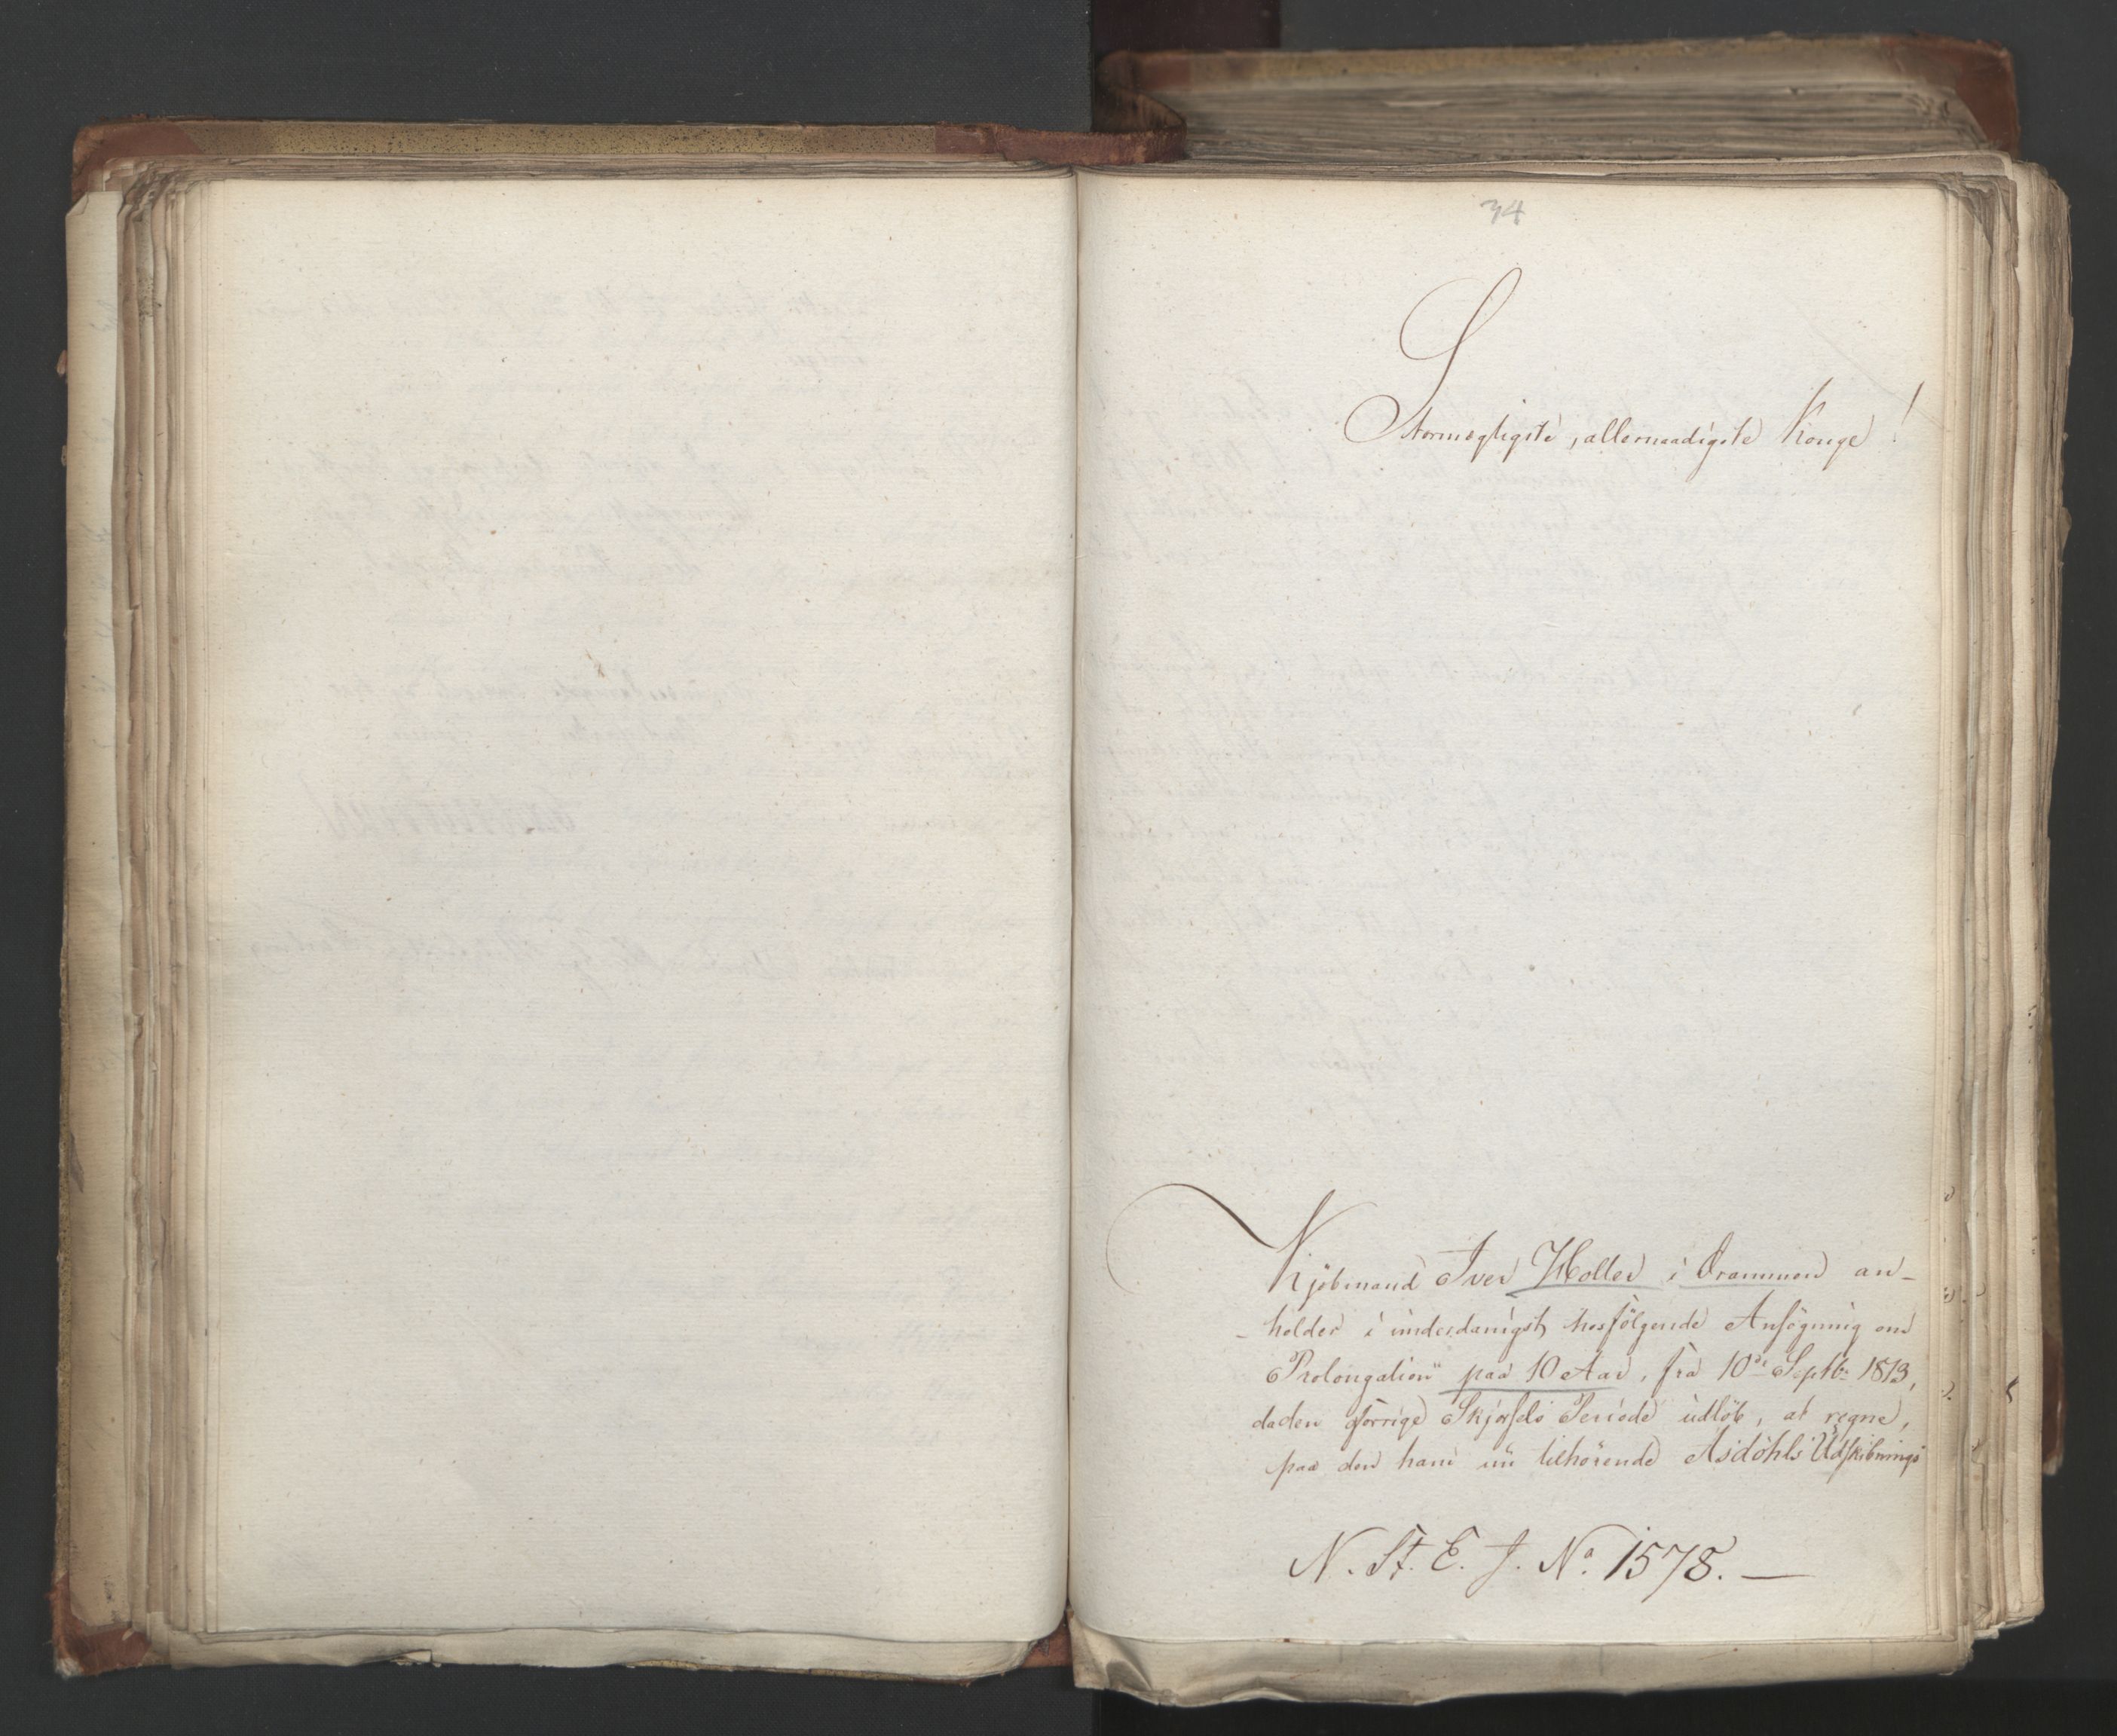 34
Stormægtigste, allernaadigste Konge!
Kjøbmand Iver Holter i Drammen an-
-holder i underdanigst hosfølgende Ansøgning om
Prolongation paa 10 Aar, fra 10de Septb: 1813,
da den forrige Skjørsels Periode udløb, at regne,
paa den ham nu tilhørende Asdöhls Udskibnings
N. St. E. J. No. 1578. —